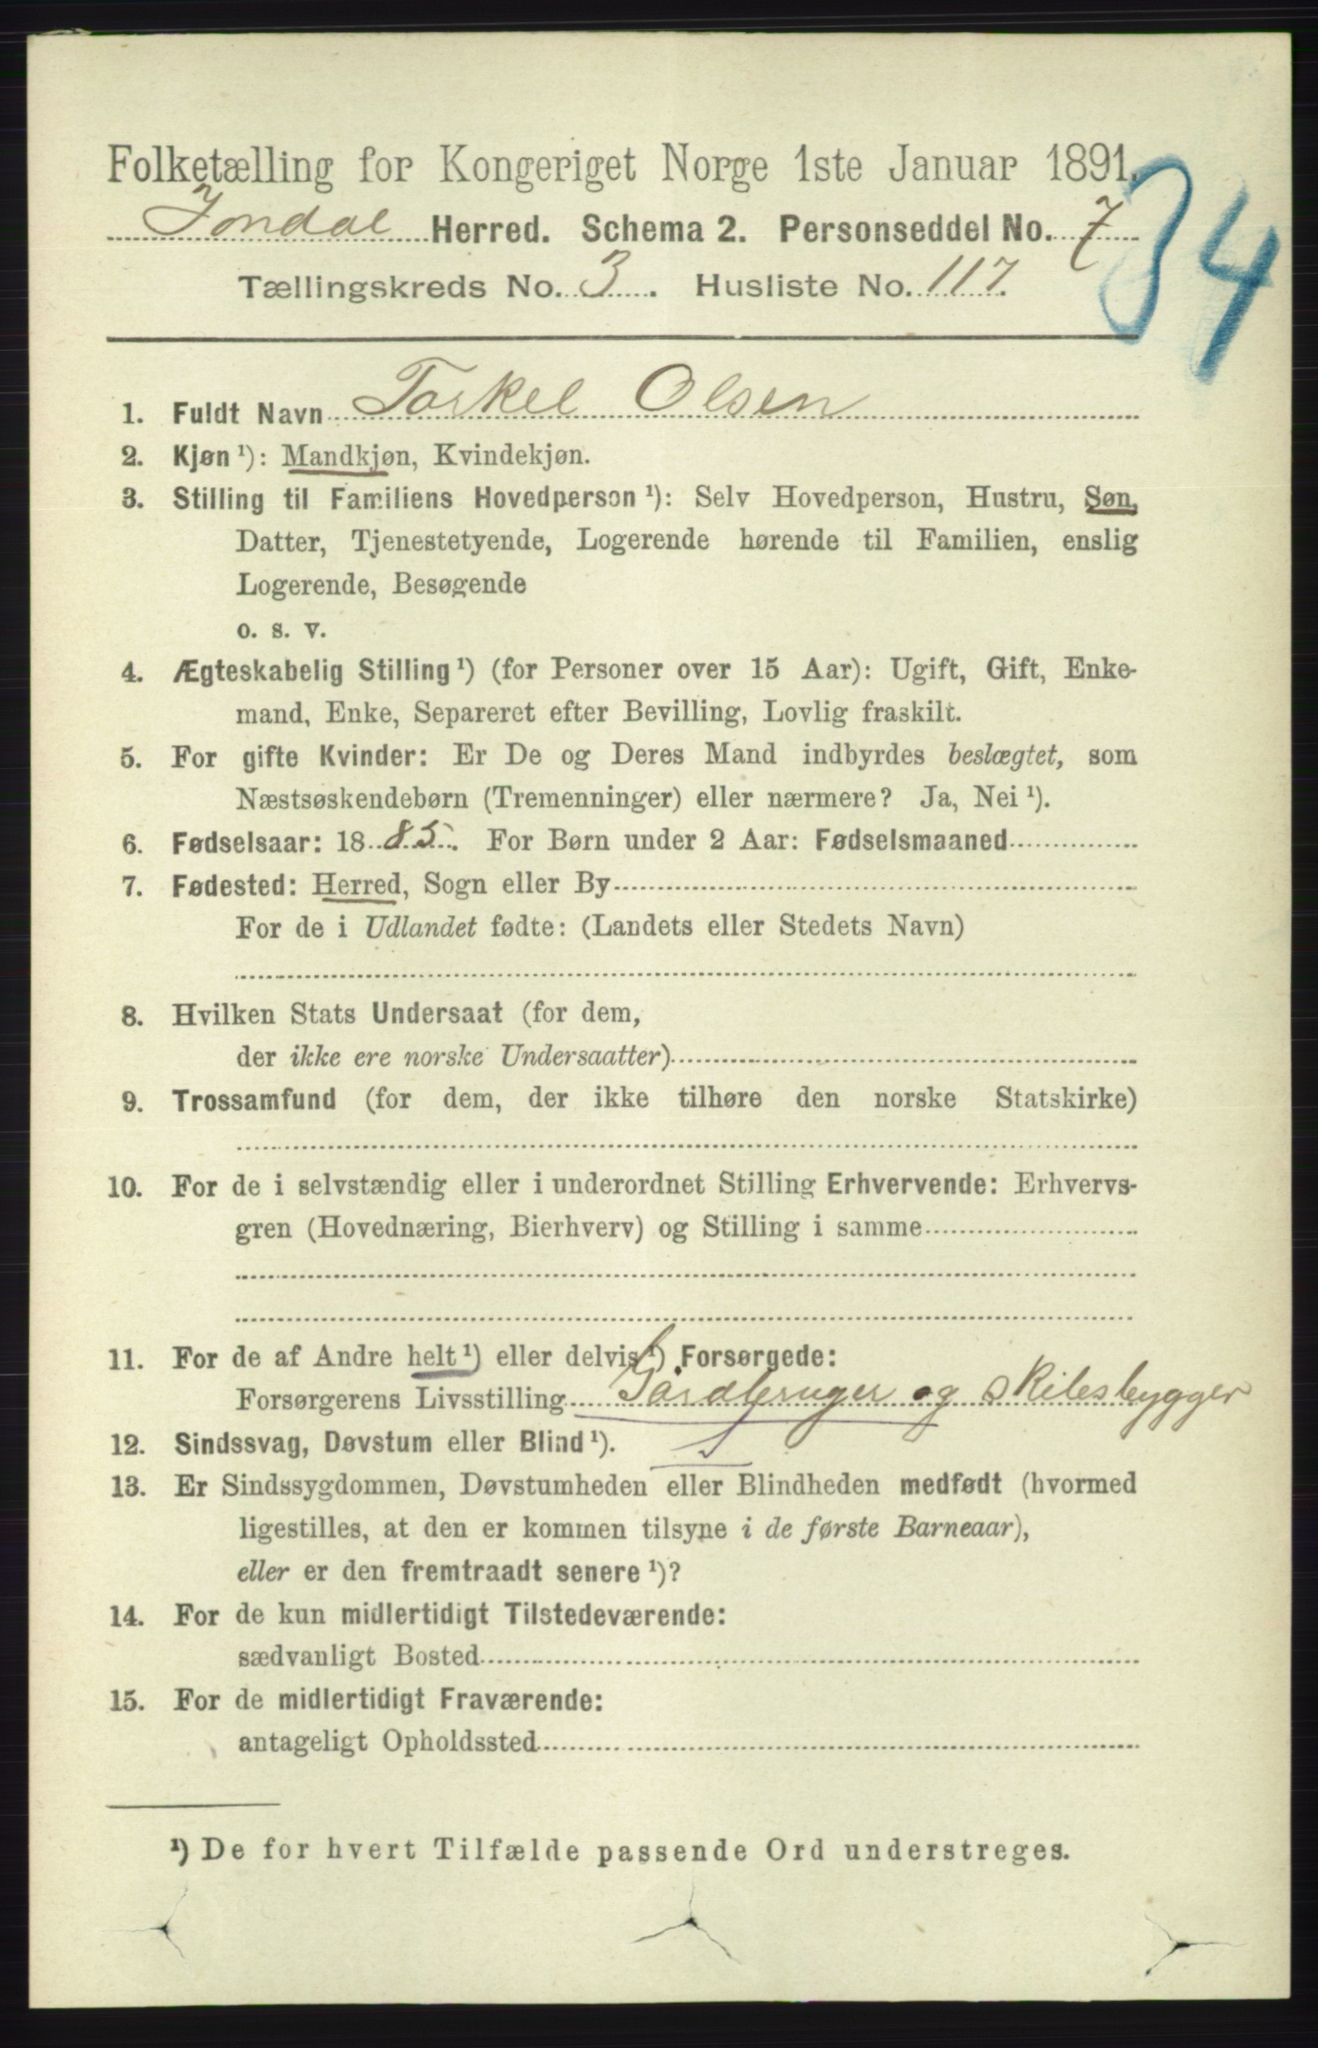 Folketælling for Kongeriget Norge 1ste Januar 1891.
34
Jondal Herred. Schema 2. Personseddel No. 7
Tællingskreds No. 3. Husliste No. 117.
1. Fuldt Navn Torkel Olsen
2. Kjøn ¹): Mandkjøn, Kvindekjøn.
3. Stilling til Familiens Hovedperson ¹): Selv Hovedperson, Hustru, Søn,
Datter, Tjenestetyende, Logerende hørende til Familien, enslig
Logerende, Besøgende
o. s. v.
4. Ægteskabelig Stilling ¹) (for Personer over 15 Aar): Ugift, Gift, Enke-
mand, Enke, Separeret efter Bevilling, Lovlig fraskilt.
5. For gifte Kvinder: Er De og Deres Mand indbyrdes beslægtet, som
Næstsøskendebørn (Tremenninger) eller nærmere? Ja, Nei ¹).
6. Fødselsaar: 1885. For Børn under 2 Aar: Fødselsmaaned
7. Fødested: Herred, Sogn eller By
For de i Udlandet fødte: (Landets eller Stedets Navn)
8. Hvilken Stats Undersaat (for dem,
der ikke ere norske Undersaatter)
9. Trossamfund (for dem, der ikke tilhøre den norske Statskirke)
10. For de i selvstændig eller i underordnet Stilling Erhvervende: Erhvervs-
gren (Hovednæring, Bierhverv) og Stilling i samme
11. For de af Andre helt ¹) eller delvis ¹) Forsørgede:
Forsørgerens Livsstilling Gårdbruger og skibsbygger
12. Sindssvag, Døvstum eller Blind ¹).
13. Er Sindssygdommen, Døvstumheden eller Blindheden medfødt (hvormed
ligestilles, at den er kommen tilsyne i de første Barneaar),
eller er den fremtraadt senere ¹)?
14. For de kun midlertidigt Tilstedeværende:
sædvanligt Bosted
15. For de midlertidigt Fraværende:
antageligt Opholdssted
¹) De for hvert Tilfælde passende Ord understreges.